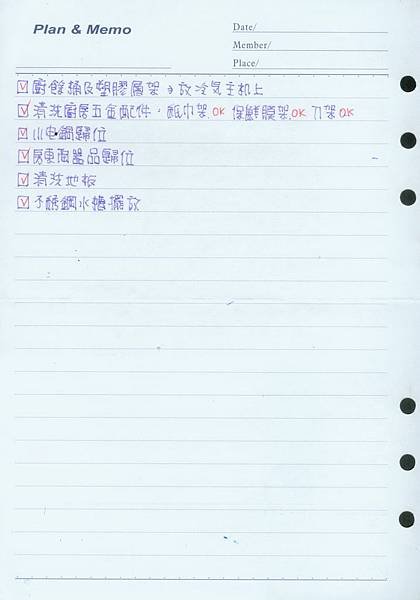 Plan & Memo
Date/
Member/
Place/
☑ 廚餘桶及塑膠層架→放冷気主机上
☑ 清洗廚房五金配件.紙巾架.OK 保鮮膜架.OK 刀架OK
☑ 小电鍋歸位
☑ 房東陶器品歸位
☑ 清洗地板
☑ 不銹鋼水槽擺放